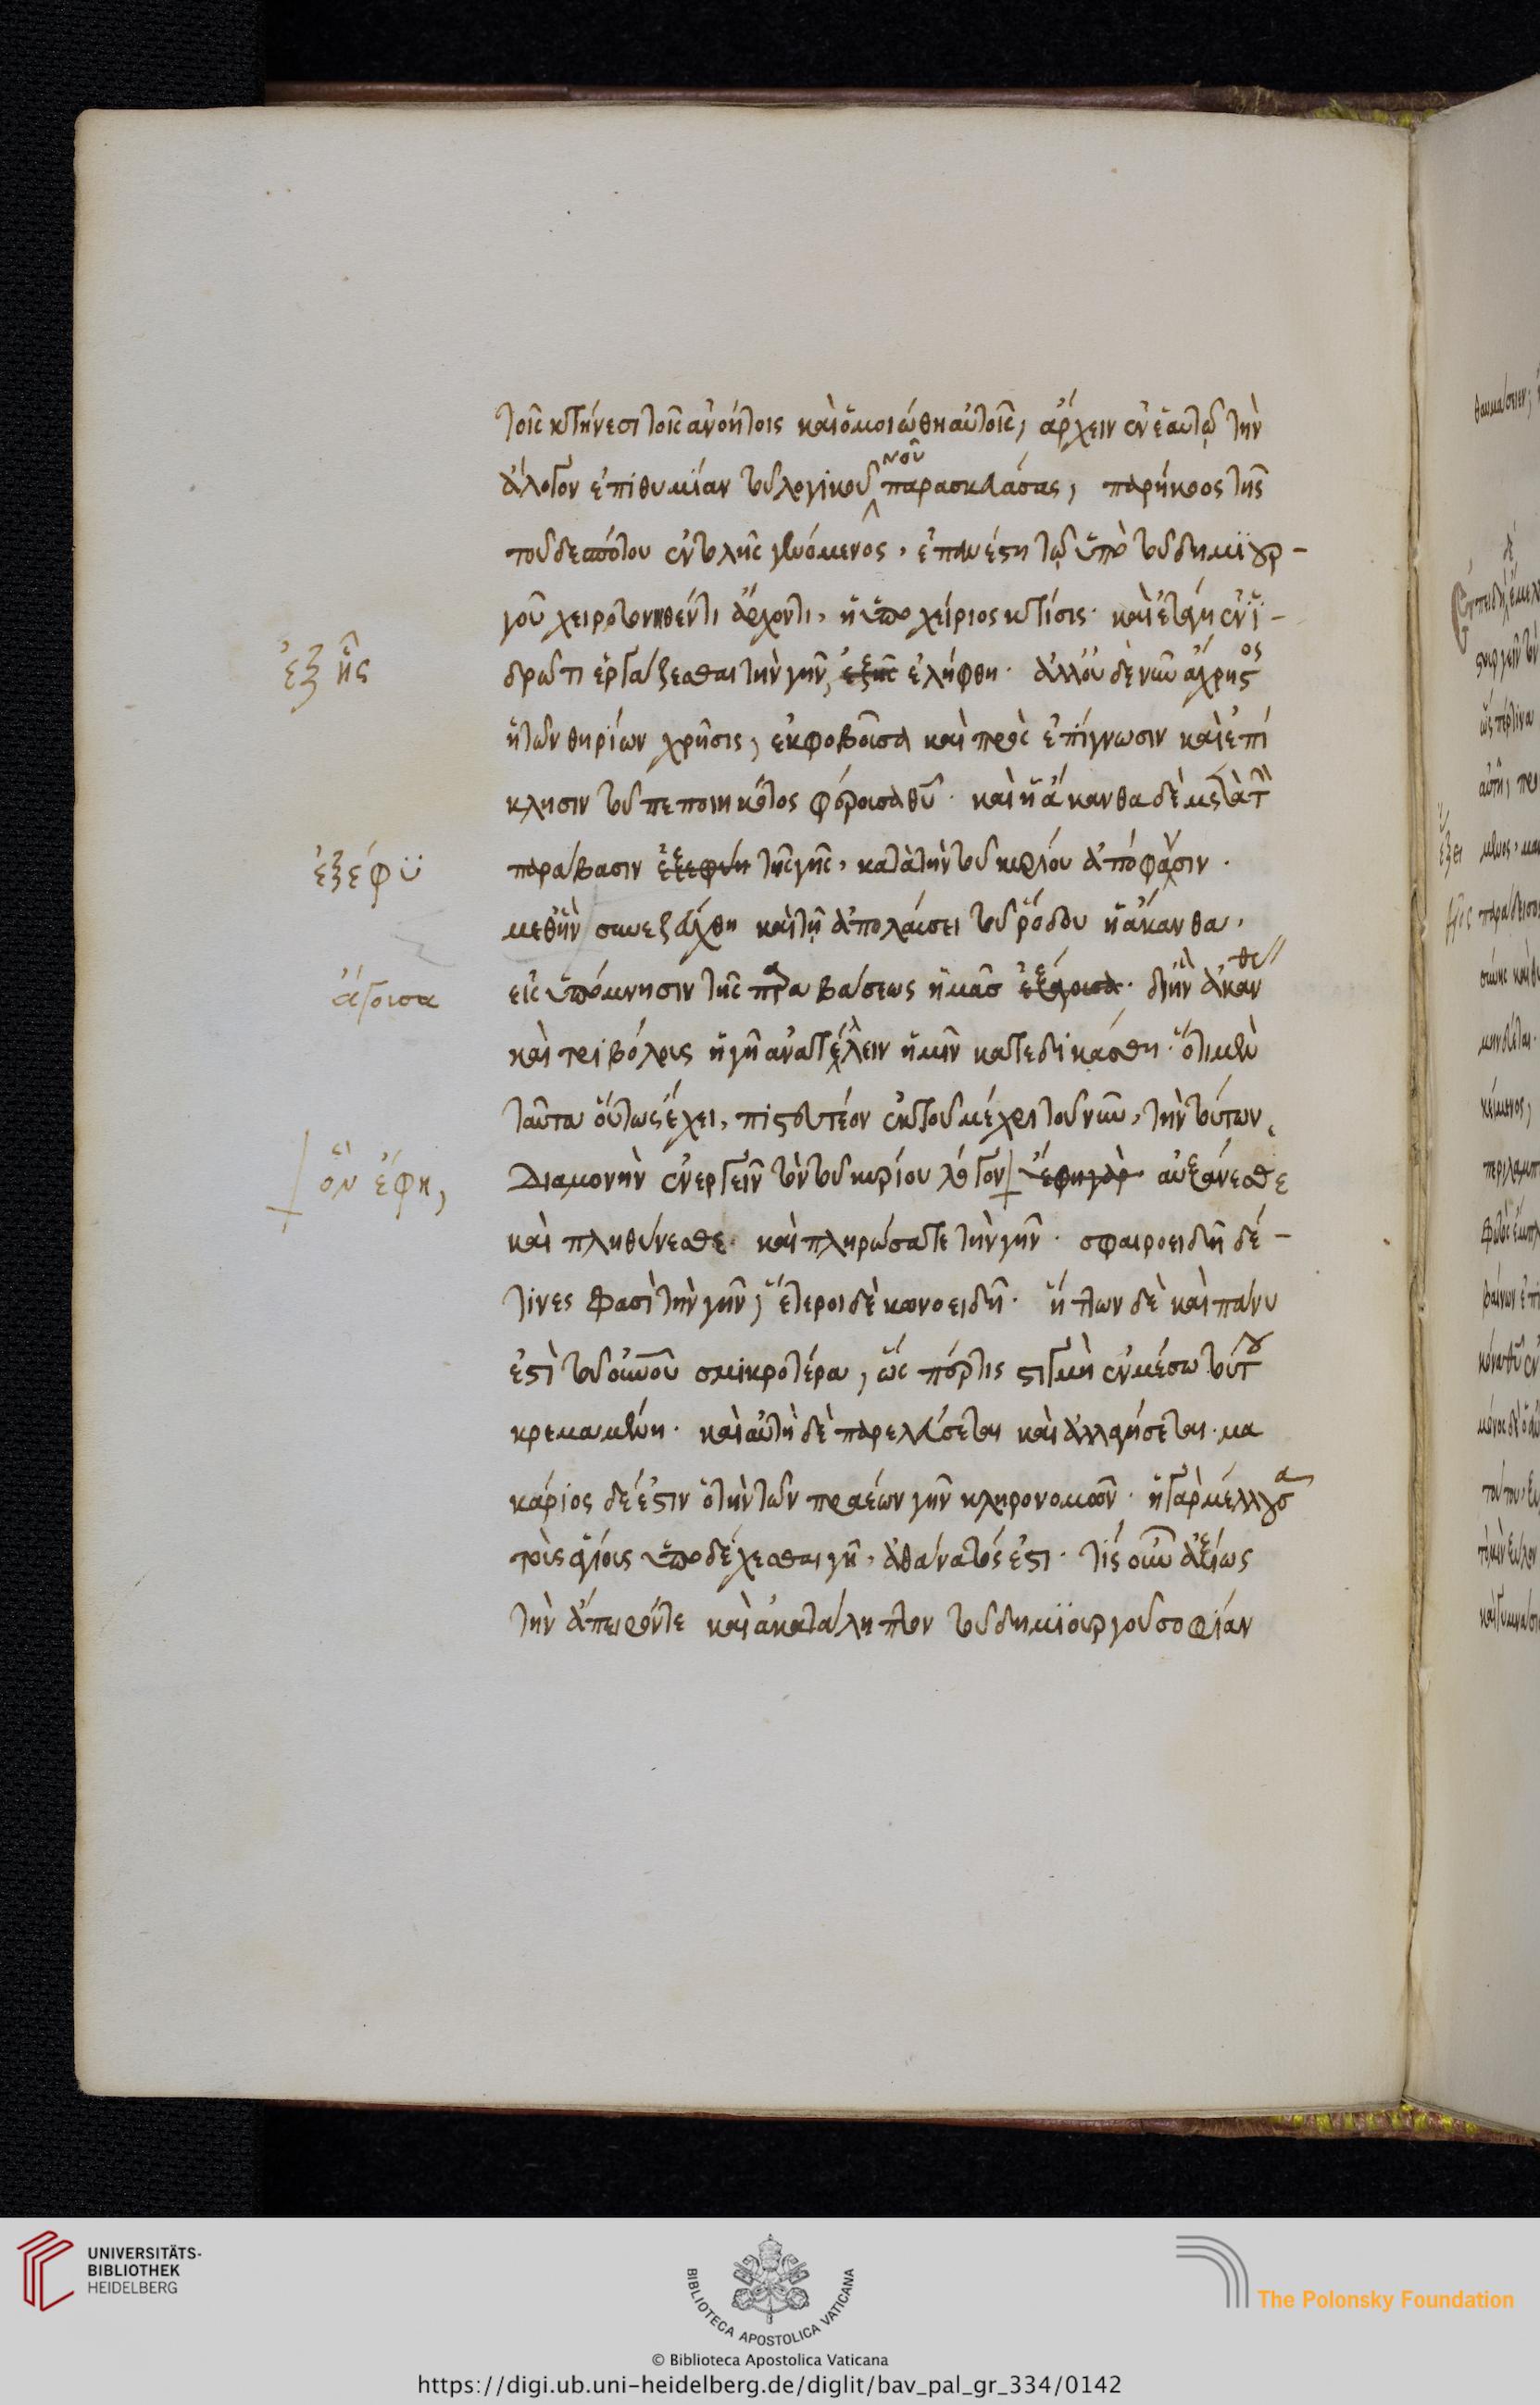 τοῖς κτήνεσι τοῖς ἀνοήτοις καὶ ὁμοιώθη αὐτοῖς, ἄρχειν ἐν ἑαυτῷ τὴν
ἄλογον ἐπιθυμίαν τοῦ λογικοῦ νοῦ παρασκευάσας, παρήκοος τῆς
τοῦ δεσπότου ἐντολῆς γενόμενος, ἐπανέστη τῷ ὑπὸ τοῦ δημϊουρ-
γοῦ χειροτονηθέντι ἄρχοντι, ἡ ὑποχείριος κτίσις. καὶ ἐν ἱ-
ἐξ ἧς
δρῶτι ἐργάζεσθαι τὴν γῆν, ἐξῆς ἐλήφθη. ἀλλ' οὐδὲ νῦν ἄχρηστος
ἡ τῶν θηρίων χρῆσις, ἐκφοβοῦσα καὶ πρὸς ἐπίγνωσιν καὶ ἐπί
κλησιν τοῦ πεποιηκότος φέρουσα θῦ. καὶ ἡ ἄκανθα δὲ μετὰ τὴν
ἐξέφϋ
παράβασιν ἐξεφύη τῆς γῆς, κατὰ τὴν τοῦ κυρίου ἀπόφασιν.
μεθ' ἣν συνεζεύχθη καὶ τῇ ἀπολαύσει τοῦ ῥόδου ἡ ἄκανθα,
ἄγουσα
εἰς ὑπόμνησιν τῆς παραβάσεως ἡμᾶς ἐξάγουσα. δι' ἣν ἀκάνθας
καὶ τριβόλους ἡ γῆ ἀνατέλλειν ἡμῖν κατεδικάσθη. ὅτι μὲν
ταῦτα οὕτως ἔχει, πιστευτέον ἐκ τοῦ μέχρι τοῦ νῦν, τὴν τούτων
ὃν ἔφη,
διαμονὴν ἐνεργεῖν τὸν τοῦ κυρίου λόγον ἔφη γὰρ αὐξάνεσθε
καὶ πληθύνεσθε. καὶ πληρώσατε τὴν γῆν. σφαιροειδῆ δέ-
τινες φασὶ τὴν γῆν, ἕτεροι δὲ κωνοειδῆ. ἥττων δὲ καὶ πάνυ
ἐστὶ τοῦ οὐνοῦ σμικροτέρα, ὥς πέρ τις στιγμὴ ἐν μέσῳ τούτου
κρεμαμένη. καὶ αὐτὴ δὲ παρελεύσεται καὶ ἀλλαγήσεται. μα
κάριος δέ ἐστιν ὁ τὴν τῶν πραέων γῆν κληρονομῶν. ἡ γὰρ μέλλουσα
τοὺς ἁγίους ὑποδέχεσθαι γῆ, ἀθάνατός ἐστι. τίς οὖν ἀξίως
τὴν ἄπειρόν τε καὶ ἀκατάληπτον τοῦ δημϊουργοῦ σοφίαν
UNIVERSITÄTS-
BIBLIOTHEK
HEIDELBERG
BIBLIOTECA APOSTOLICA VATICANA
The Polonsky Foundation
© Biblioteca Apostolica Vaticana
https://digi.ub.uni-heidelberg.de/diglit/bav_pal_gr_334/0142